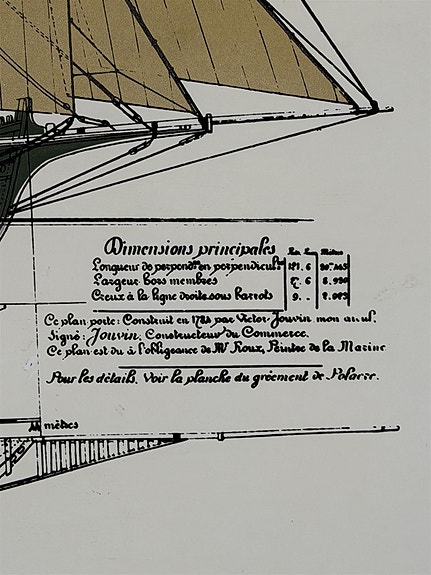 Dimensions principales
Longueur de perpend.re en perpendicule
Largeur hors membres
Creux à la ligne droite sous barrots 9.
Ce plan porte: Construit en par Victor Jouvin mon aieul.
Signé: Jouvin, Constructeur du Commerce.
Ce plan est du à l'obligeance de Mr Roux, Peintre de la Marine
Pour les détails. Voir la planche du gréement de Polacre.
mètres